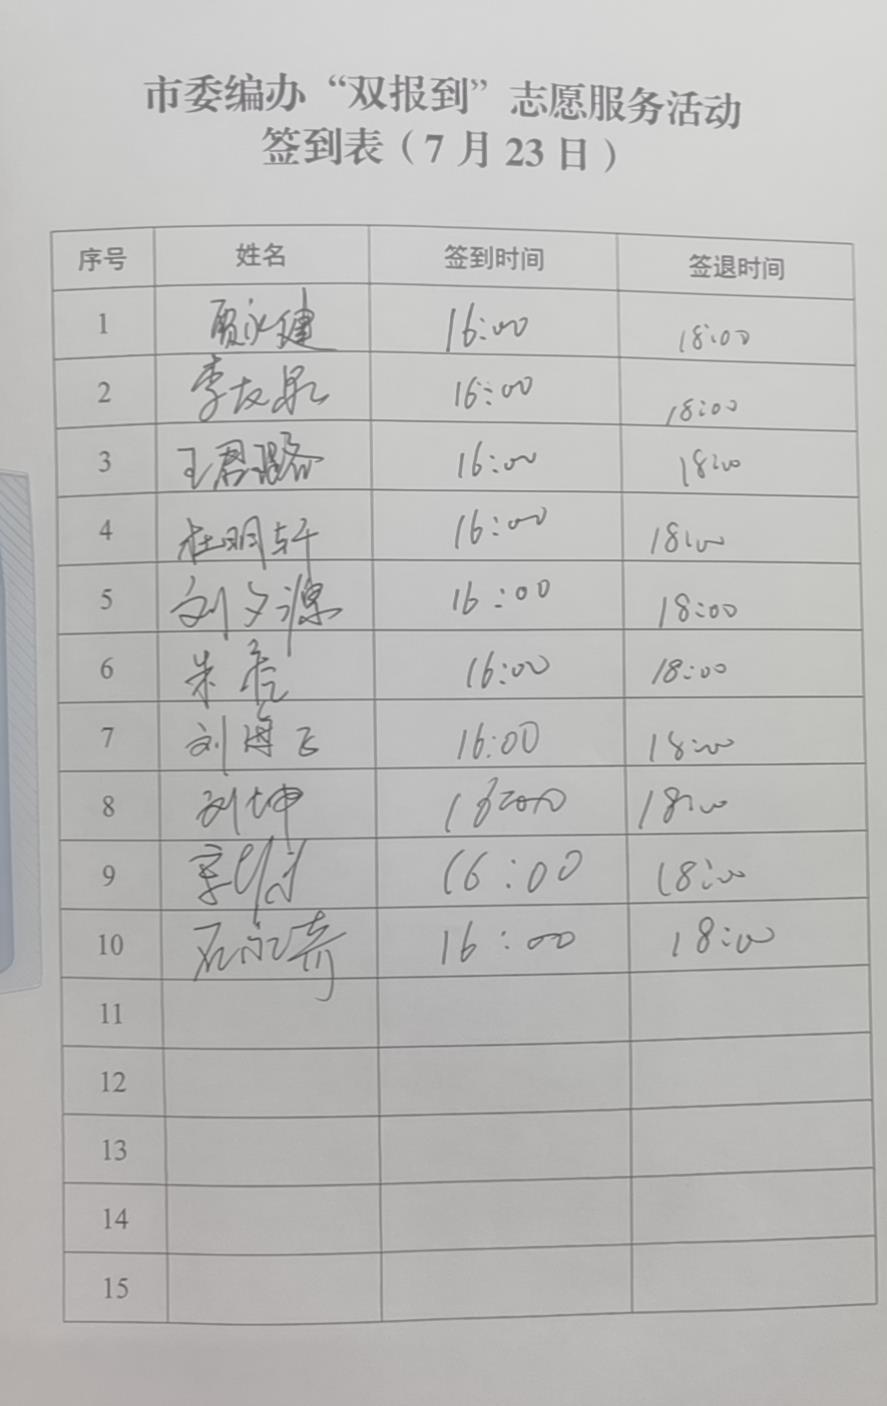 市委编办“双报到”志愿服务活动
签到表（7月23日）
序号 姓名 签到时间 签退时间
1 贾永健 16:00 18:00
2 李友泉 16:00 18:00
3 王君璐 16:00 18:00
4 杜明轩 16:00 18:00
5 刘夕源 16:00 18:00
6 朱亮 16:00 18:00
7 刘海飞 16:00 18:00
8 刘坤 16:00 18:00
9 16:00 18:00
10 石永琦 16:00 18:00
11
12
13
14
15